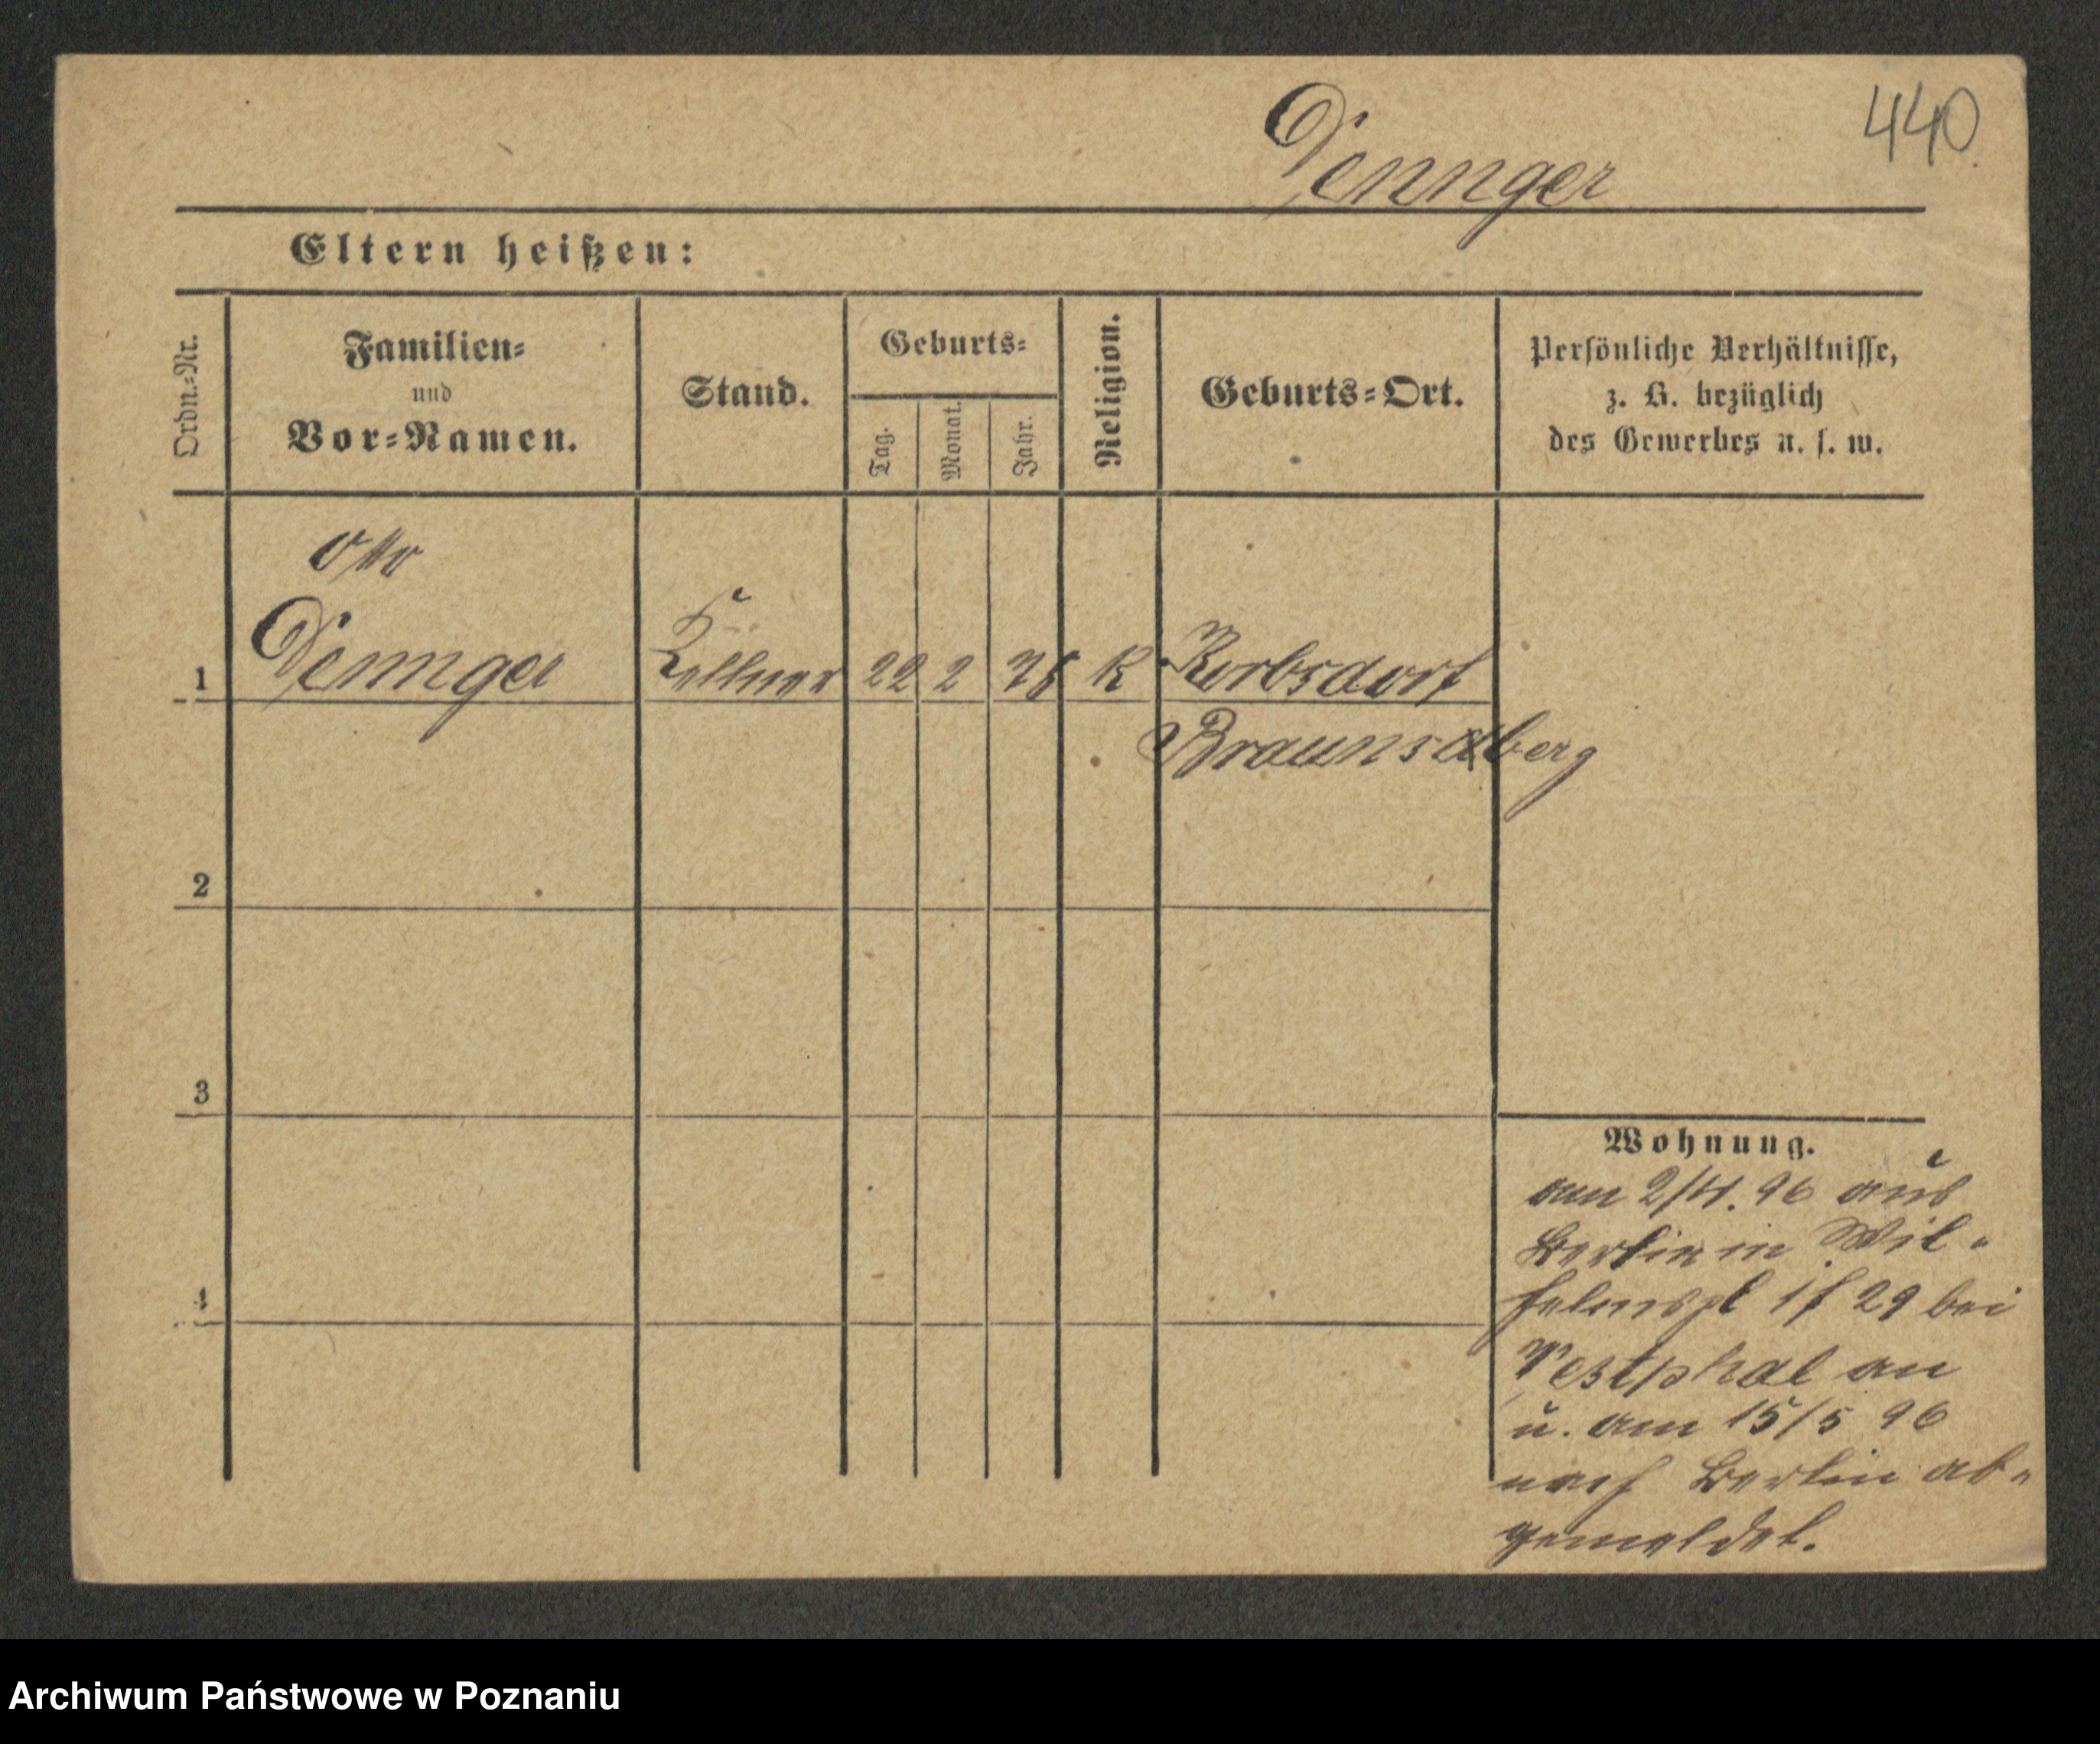 440
Dennger
Eltern heißen:
Ordn.-Nr.
Familien-
und
Vor-Namen.
Stand.
Geburts-
Tag.
Monat.
Jahr.
Religion.
Geburts-Ort.
Persönliche Verhältnisse,
z. B. bezüglich
des Gewerbes u. s. w.
Otto
1 Dennger Kellner 22 2 78 K Korbsdorf
Braunsberg
2
3
4
Wohnung.
am 2/4. 96 aus
Berlin in Wil-
helmspl 18 29 bei
Vestphal an
u. am 15/5 96
nach Berlin ab-
gemeldet.
Archiwum Państwowe w Poznaniu